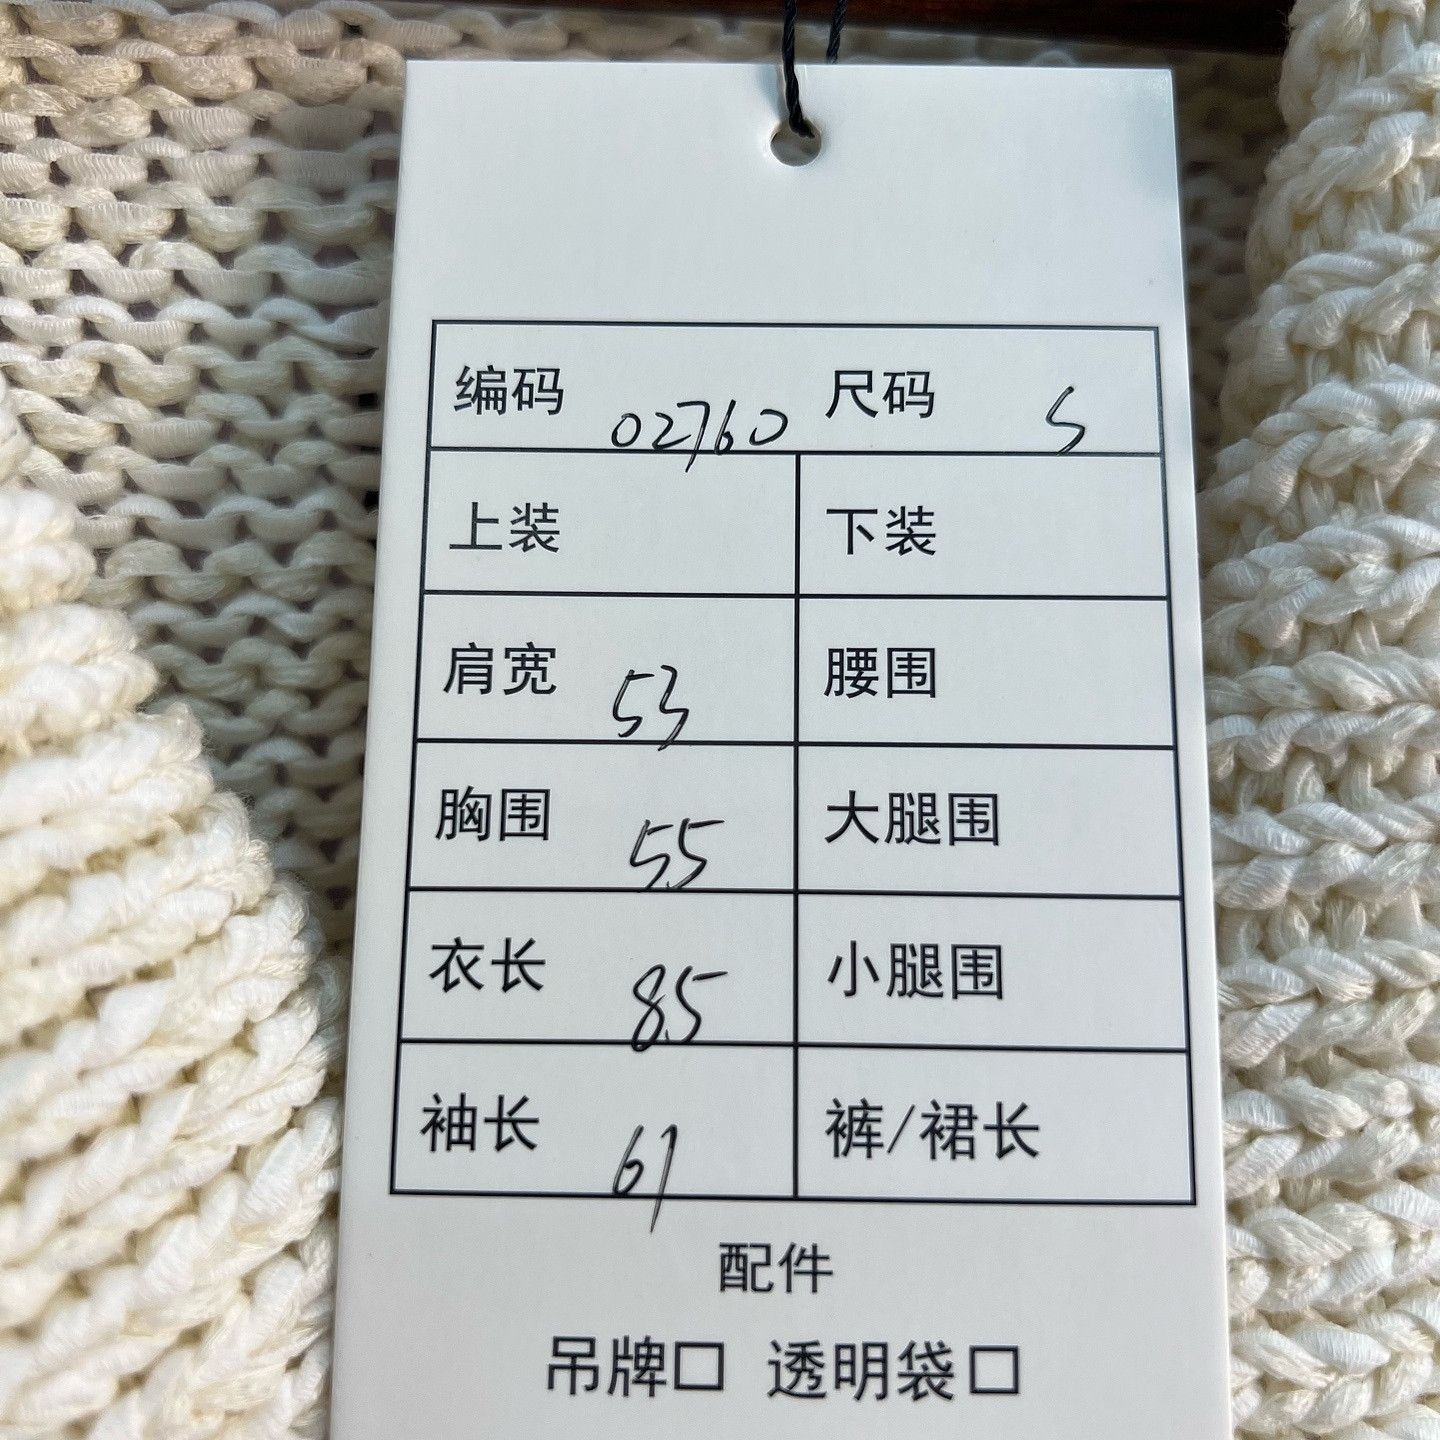 编码 02760 尺码 S
上装 下装
肩宽 53 腰围
胸围 55 大腿围
衣长 85 小腿围
袖长 61 裤/裙长
配件
吊牌□ 透明袋□